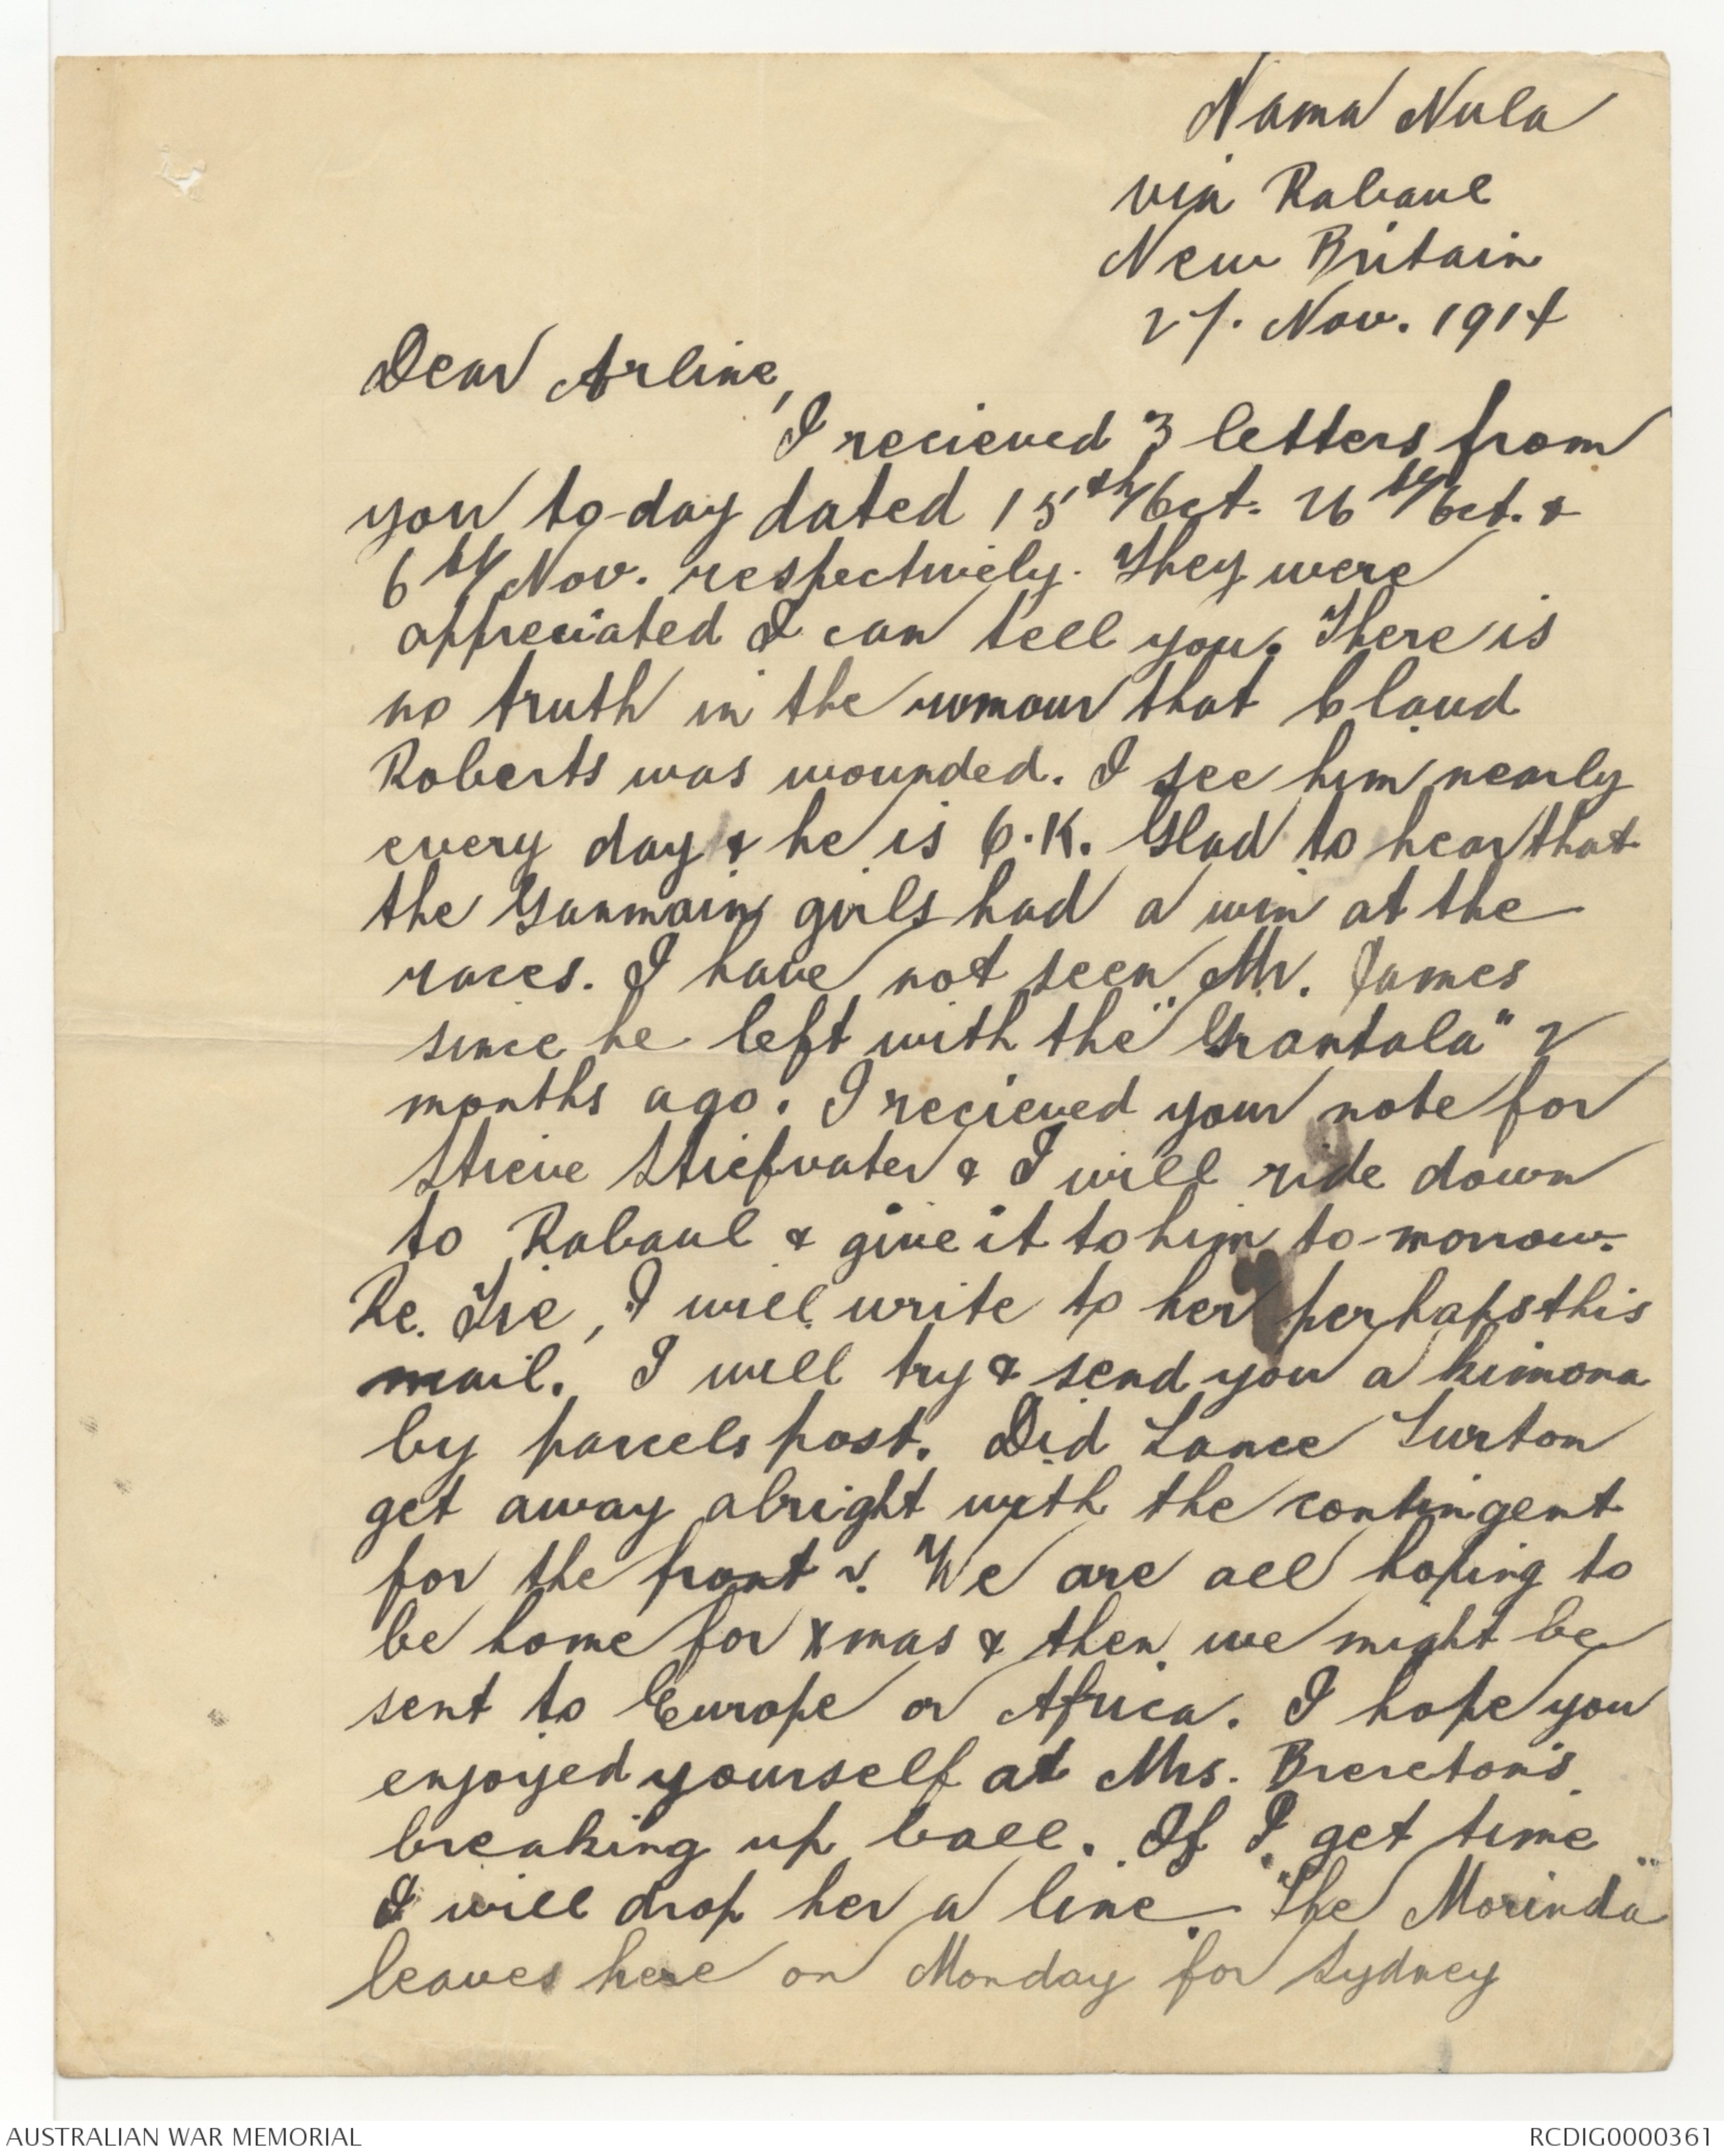 Nama Nula
via Rabaul
New Britain
27. Nov. 1914
Dear Arline,
I recieved 3 letters from
you to-day dated 15th/Oct. 26th/Oct. &
6th/Nov. respectively. They were
appreciated I can tell you. There is
no truth in the rumour that Claud
Roberts was wounded. I see him nearly
every day & he is O.K. Glad to hear that
the Ganmain girls had a win at the
races. I have not seen Mr. James
since he left with the "Grantala" 2
months ago. I recieved your note for
Steve Stiefvater & I will ride down
to Rabaul & give it to him to-morrow.
Re. , I will write to her perhaps this
mail. I will try & send you a kimona
by parcels post. Did Lance Lurton
get away alright with the contingent
for the front ?. We are all hoping to
be home for Xmas & then we might be
sent to Europe or Africa. I hope you
enjoyed yourself at Mrs. Brereton's
breaking up ball. If I get time
I will drop her a line. The "Morinda"
leaves here on Monday for Sydney
AUSTRALIAN WAR MEMORIAL
RCDIG0000361